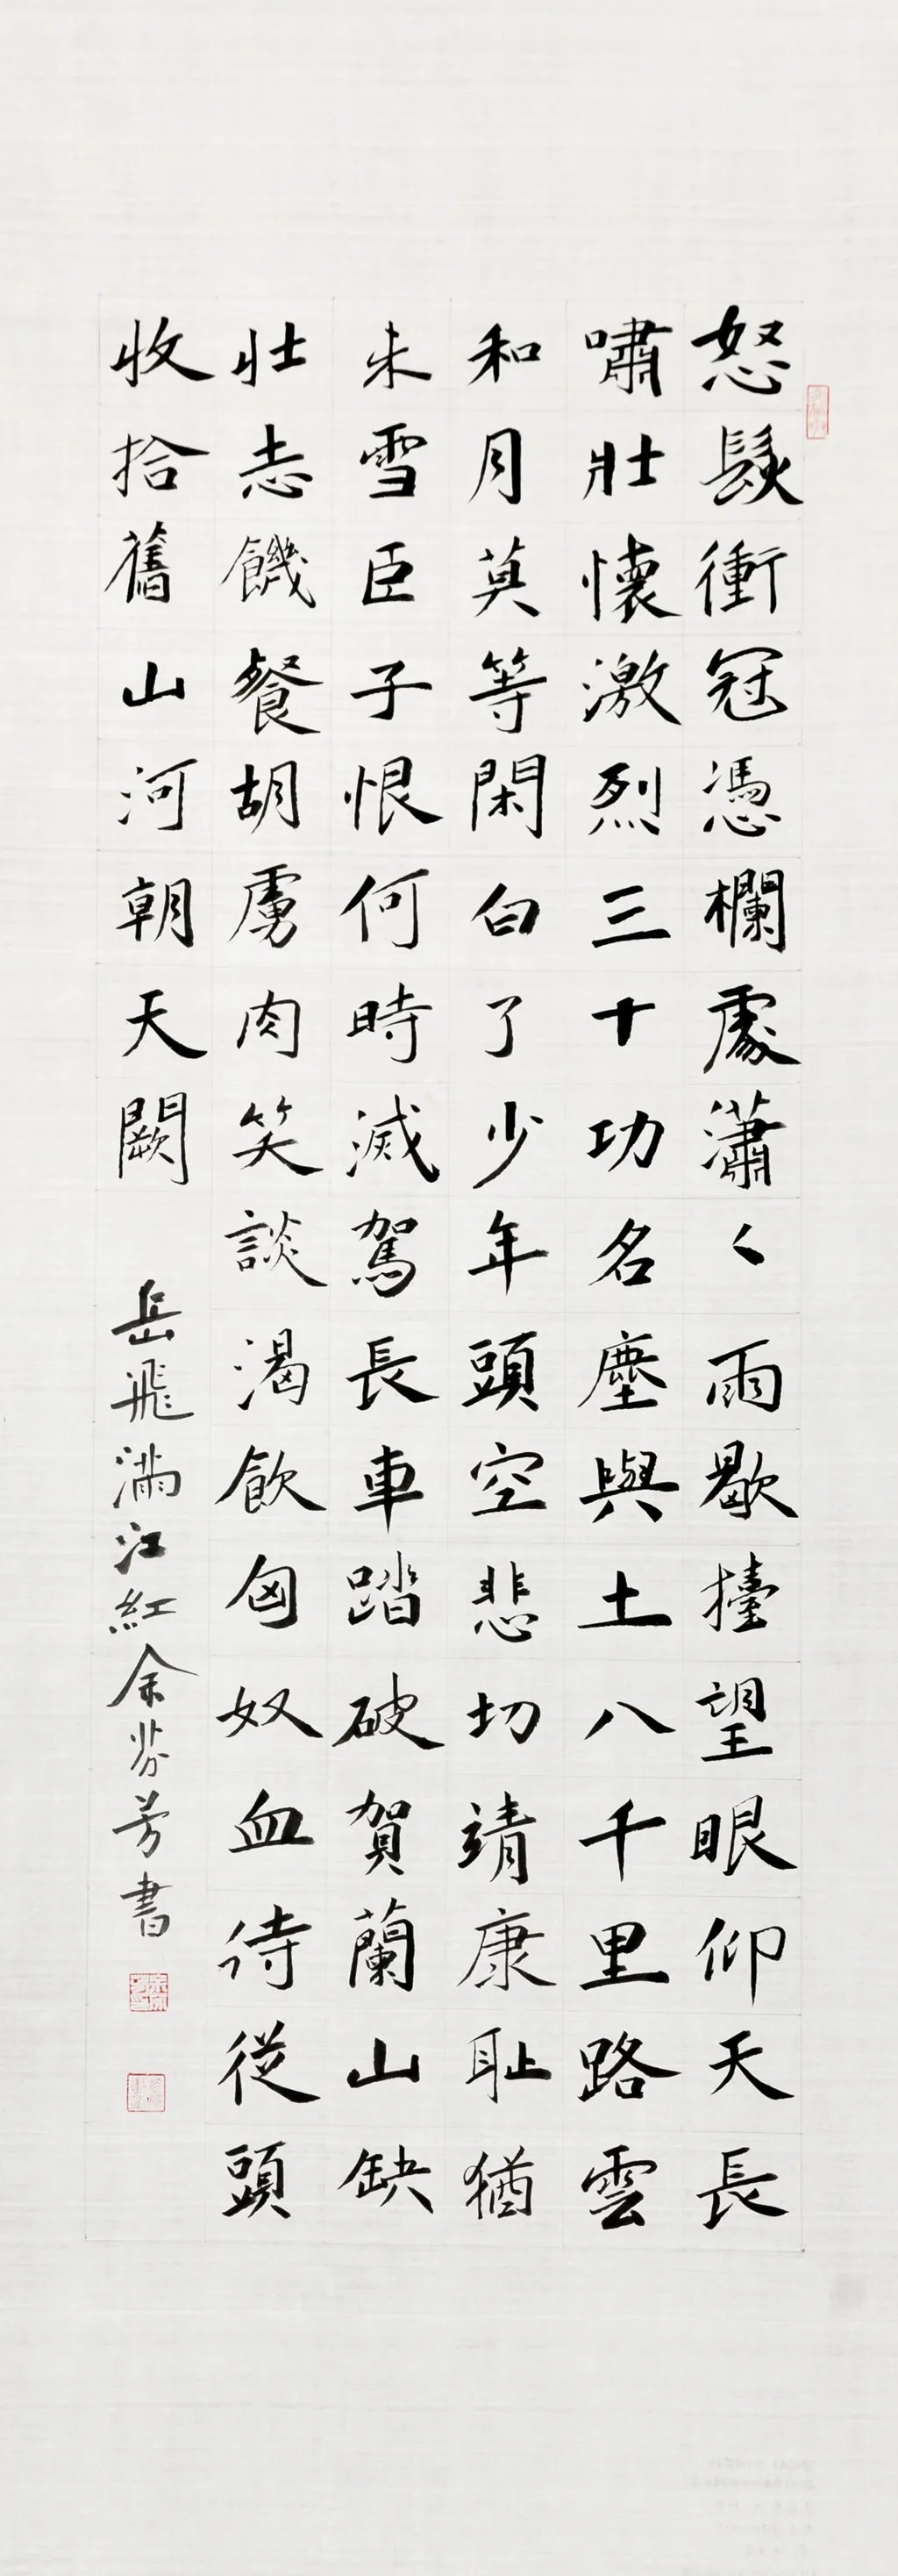 怒髮衝冠憑欄處瀟〻雨歇擡望眼仰天長
嘯壯懷激烈三十功名塵與土八千里路雲
和月莫等閑白了少年頭空悲切靖康恥猶
未雪臣子恨何時滅駕長車踏破賀蘭山缺
壯志饑餐胡虜肉笑談渴飲匈奴血待從頭
收拾舊山河朝天闕
岳飛滿江紅余芬芳書